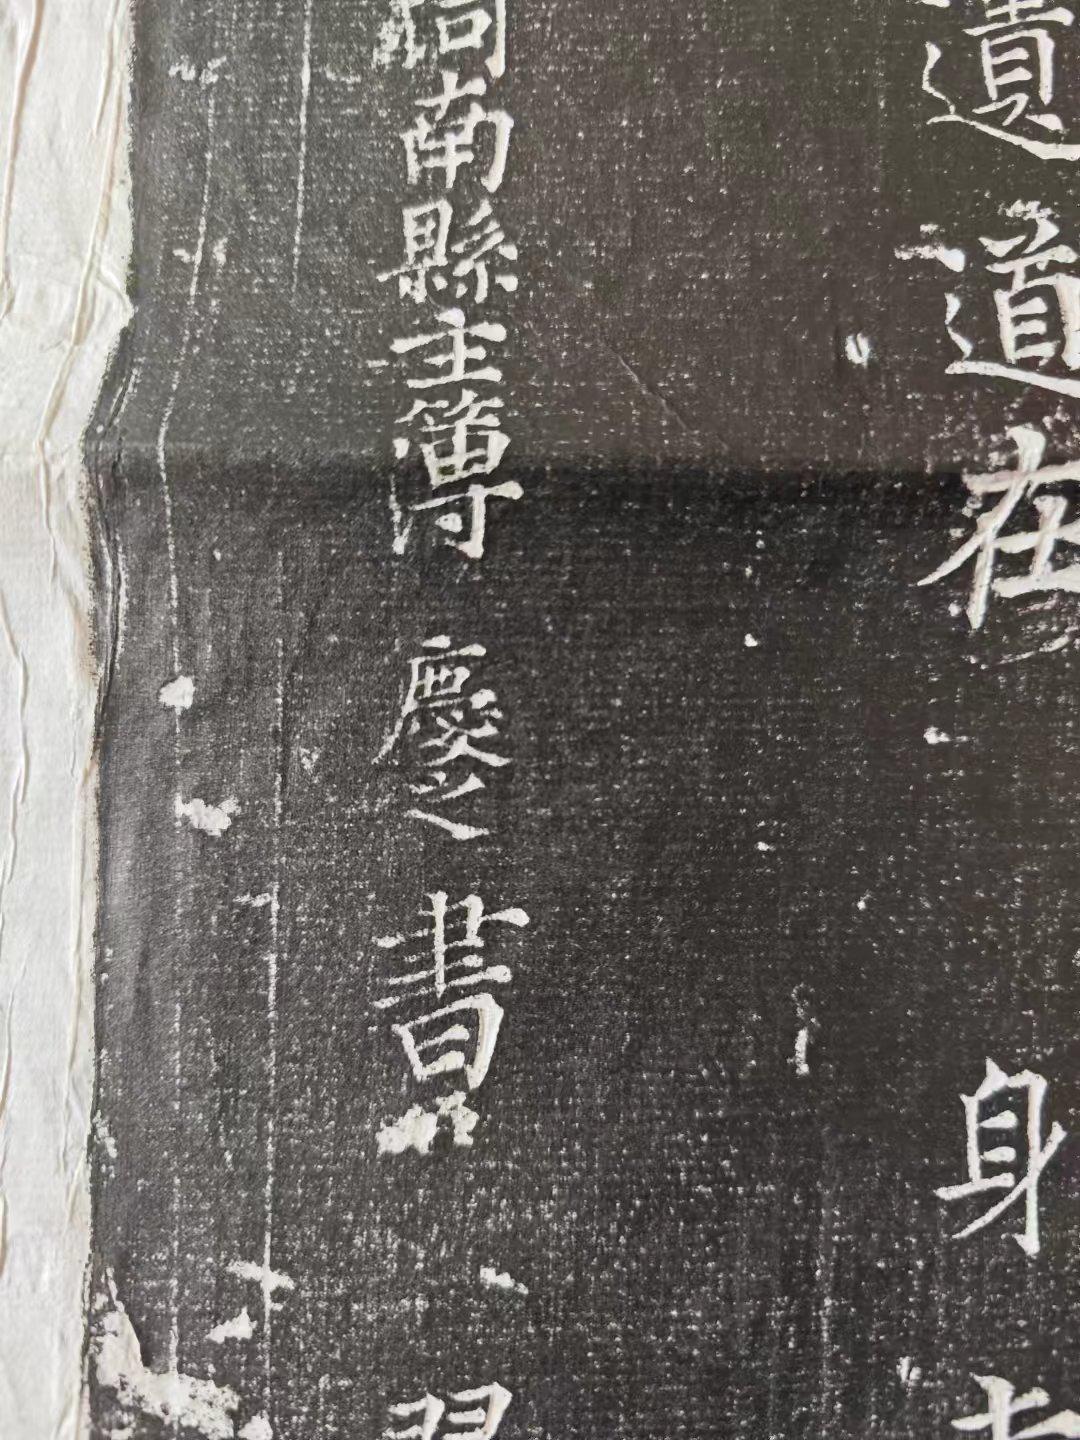 遺道在身
南縣主簿慶之書